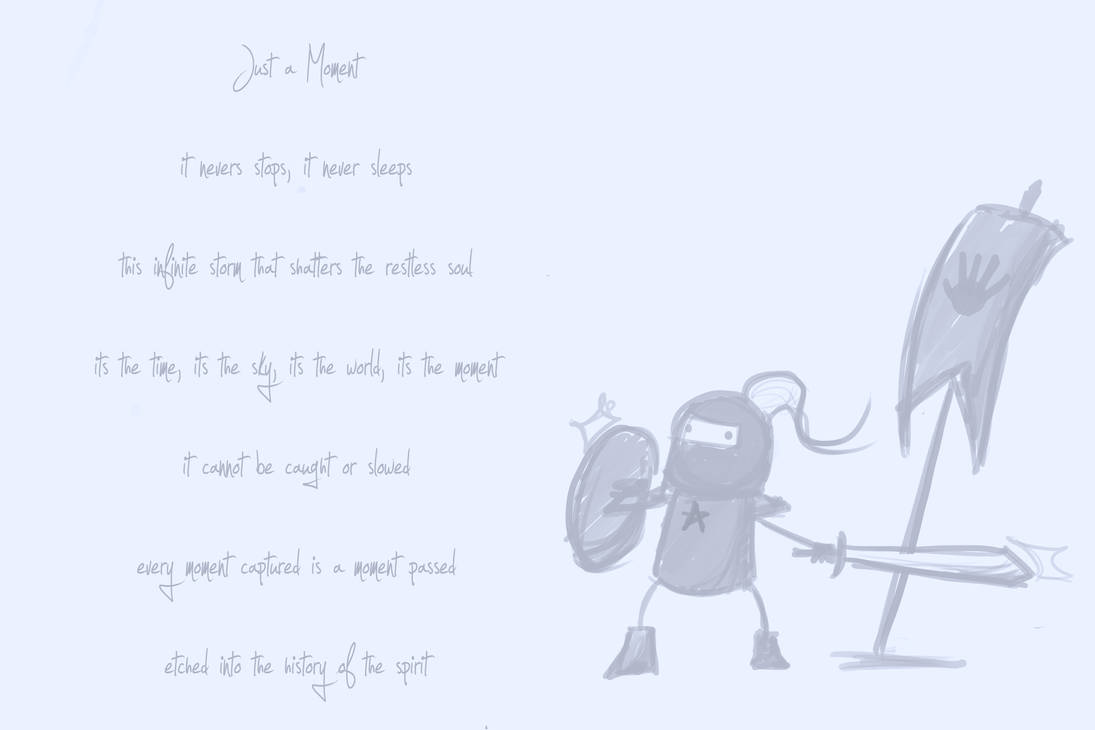 Just a Moment
it nevers stops, it never sleeps
this infinite storm that shatters the restless soul
its the time, its the sky, its the world, its the moment
it cannot be caught or slowed
every moment captured is a moment passed
etched into the history of the spirit